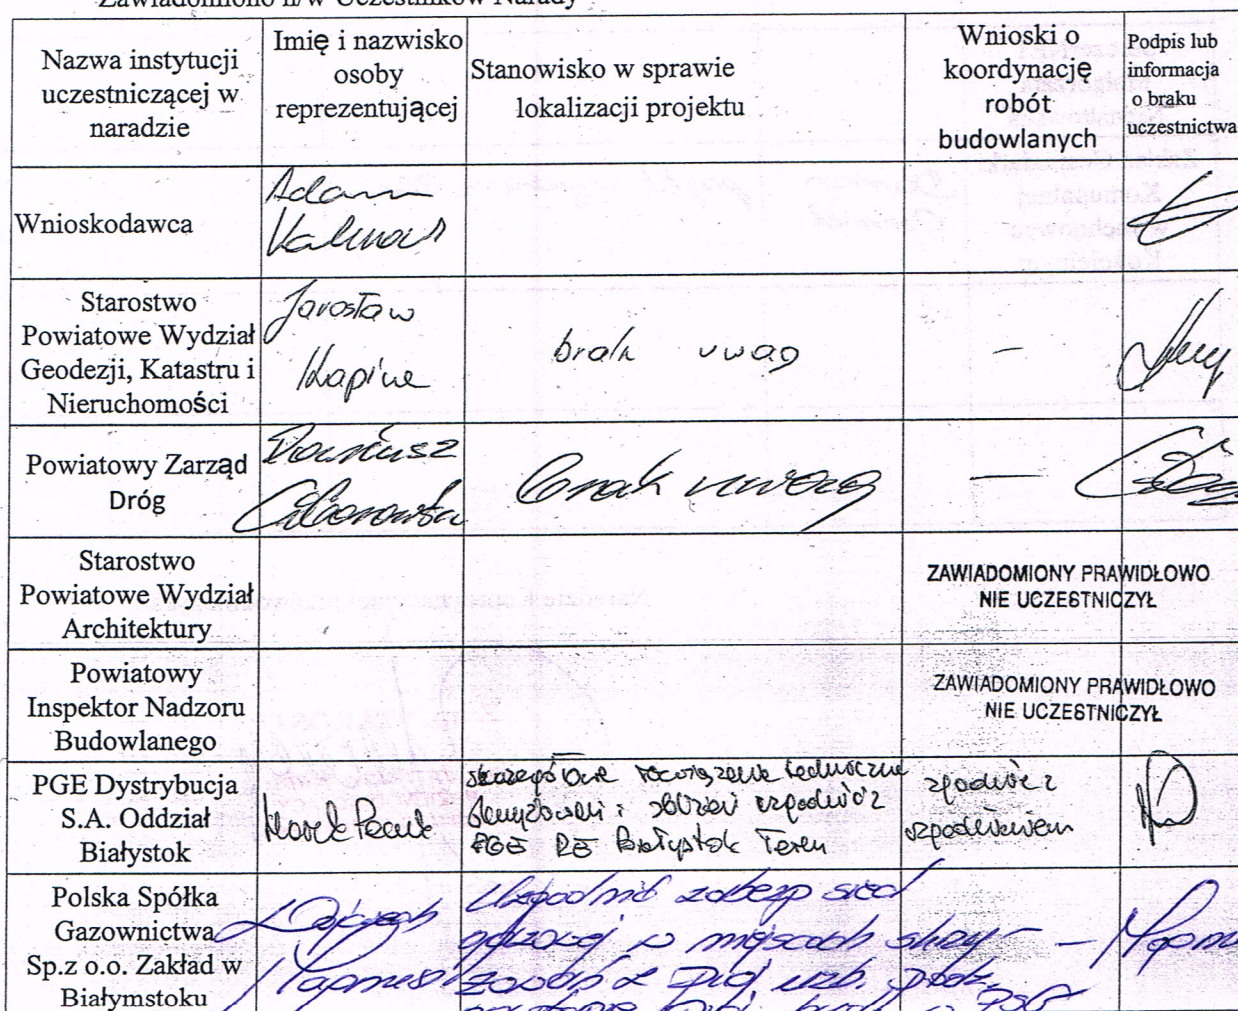 Zawiadomiono n/w Uczestników Narady
Nazwa instytucji
uczestniczącej w
naradzie
Imię i nazwisko
osoby
reprezentującej
Stanowisko w sprawie
lokalizacji projektu
Wnioski o
koordynację
robót
budowlanych
Podpis lub
informacja
o braku
uczestnictwa
Wnioskodawca
Adam
Starostwo
Powiatowe Wydział
Geodezji, Katastru i
Nieruchomości
Jarosław
brak uwag
—
Powiatowy Zarząd
Dróg
Dariusz
brak uwag
—
Starostwo
Powiatowe Wydział
Architektury
ZAWIADOMIONY PRAWIDŁOWO
NIE UCZESTNICZYŁ
Powiatowy
Inspektor Nadzoru
Budowlanego
ZAWIADOMIONY PRAWIDŁOWO
NIE UCZESTNICZYŁ
PGE Dystrybucja
S.A. Oddział
Białystok
Marek
szczegółowe rozwiązanie techniczne
skrzyżowań i zbliżeń uzgodnić z
PGE RE Białystok Teren
zgodnie z
uzgodnieniem
Polska Spółka
Gazownictwa
Sp.z o.o. Zakład w
Białymstoku
Uzgodnić zabezp sieci
gazowej w miejscach skrzy-
—
z proj
PSG